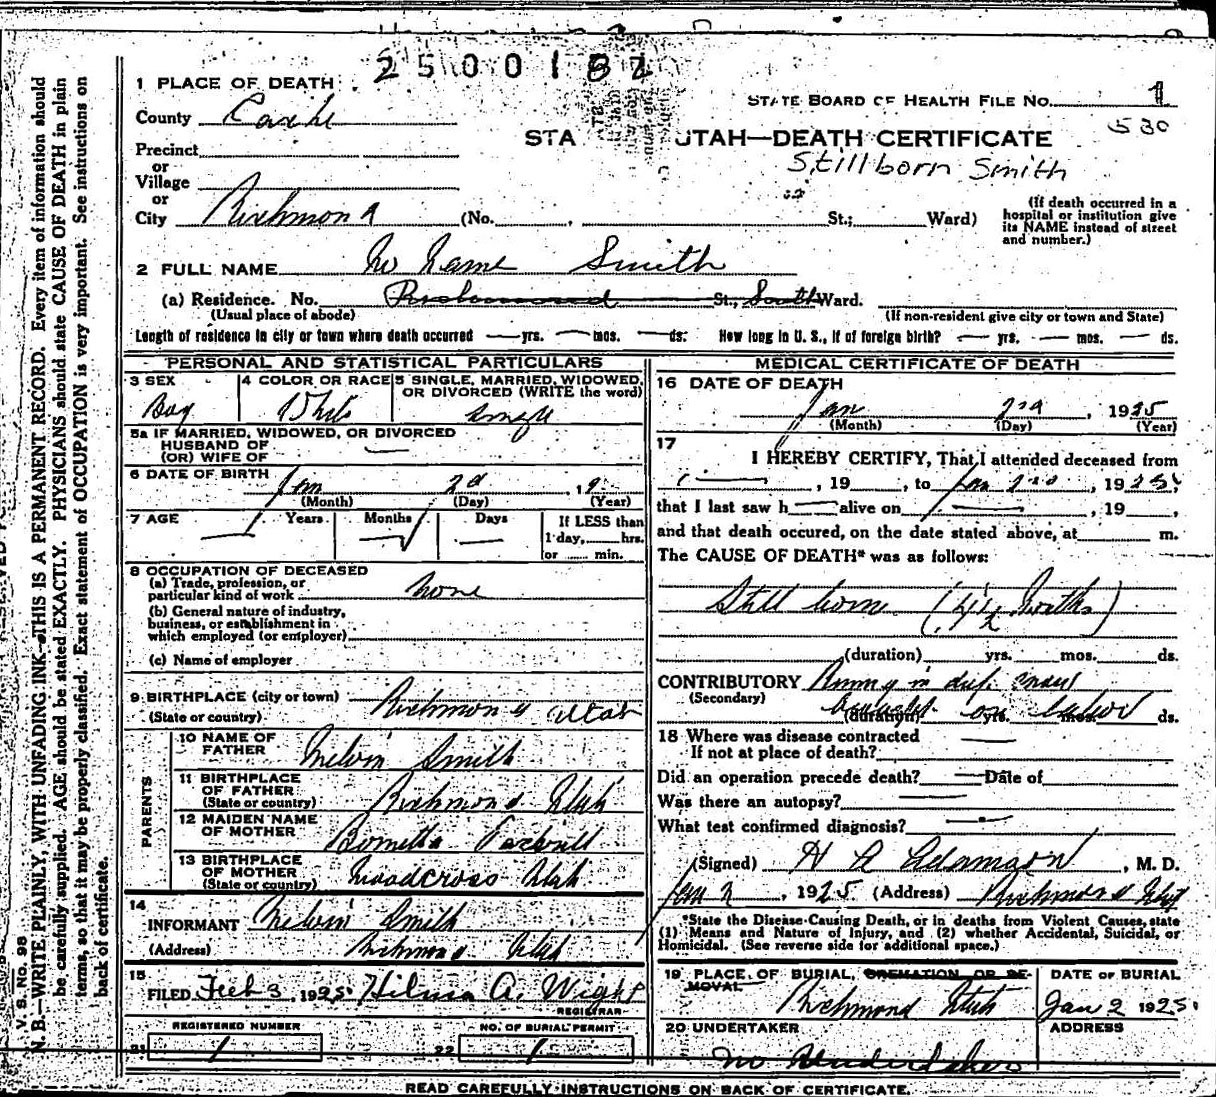 2500187
1 PLACE OF DEATH
STATE BOARD OF HEALTH FILE No. 1
530
County Cache
STA UTAH—DEATH CERTIFICATE
Stillborn Smith
Precinct
or
Village
or
City Richmond (No. , St.; Ward)
(If death occurred in a hospital or institution give its NAME instead of street and number.)
2 FULL NAME No Name Smith
(a) Residence. No. Richmond St., South Ward.
(Usual place of abode) (If non-resident give city or town and State)
Length of residence in city or town where death occurred — yrs. — mos. — ds. How long in U. S., if of foreign birth? — yrs. — mos. — ds.
PERSONAL AND STATISTICAL PARTICULARS
3 SEX Boy
4 COLOR OR RACE White
5 SINGLE, MARRIED, WIDOWED, OR DIVORCED (WRITE the word) single
5a IF MARRIED, WIDOWED, OR DIVORCED
HUSBAND OF
(OR) WIFE OF —
6 DATE OF BIRTH Jan 2d , 19
(Month) (Day) (Year)
7 AGE Years Months Days If LESS than 1 day, hrs. or min.
8 OCCUPATION OF DECEASED
(a) Trade, profession, or particular kind of work none
(b) General nature of industry, business, or establishment in which employed (or employer)
(c) Name of employer
9 BIRTHPLACE (city or town) Richmond Utah
(State or country)
PARENTS
10 NAME OF FATHER Melvin Smith
11 BIRTHPLACE OF FATHER Richmond Utah
(State or country)
12 MAIDEN NAME OF MOTHER
13 BIRTHPLACE OF MOTHER Woodcross Utah
(State or country)
14
INFORMANT Melvin Smith
(Address) Richmond Utah
15
FILED Feb 3, 1925 Hilma A. Wight
REGISTRAR
REGISTERED NUMBER
21 1
NO. OF BURIAL PERMIT
22 1
MEDICAL CERTIFICATE OF DEATH
16 DATE OF DEATH
Jan 2nd, 1925
(Month) (Day) (Year)
17
I HEREBY CERTIFY, That I attended deceased from
— , 19 , to Jan 2nd , 1925,
that I last saw h — alive on — , 19 ,
and that death occured, on the date stated above, at m.
The CAUSE OF DEATH* was as follows:
Still born (4½ Months)
(duration) yrs. mos. ds.
CONTRIBUTORY
(Secondary) on labor
(duration) yrs. mos. ds.
18 Where was disease contracted
If not at place of death? —
Did an operation precede death? — Date of
Was there an autopsy? —
What test confirmed diagnosis? —
(Signed) H A Adamson, M. D.
Jan 2, 1925 (Address) Richmond Utah
*State the Disease Causing Death, or in deaths from Violent Causes, state
(1) Means and Nature of Injury, and (2) whether Accidental, Suicidal, or
Homicidal. (See reverse side for additional space.)
19 PLACE OF BURIAL, CREMATION, OR REMOVAL
Richmond Utah
DATE OF BURIAL
Jan 2 1925
20 UNDERTAKER
No Undertaker
ADDRESS
READ CAREFULLY INSTRUCTIONS ON BACK OF CERTIFICATE.
V. S. No. 98
N. B.—WRITE PLAINLY, WITH UNFADING INK—THIS IS A PERMANENT RECORD. Every item of information should
be carefully supplied. AGE should be stated EXACTLY. PHYSICIANS should state CAUSE OF DEATH in plain
terms, so that it may be properly classified. Exact statement of OCCUPATION is very important. See instructions on
back of certificate.